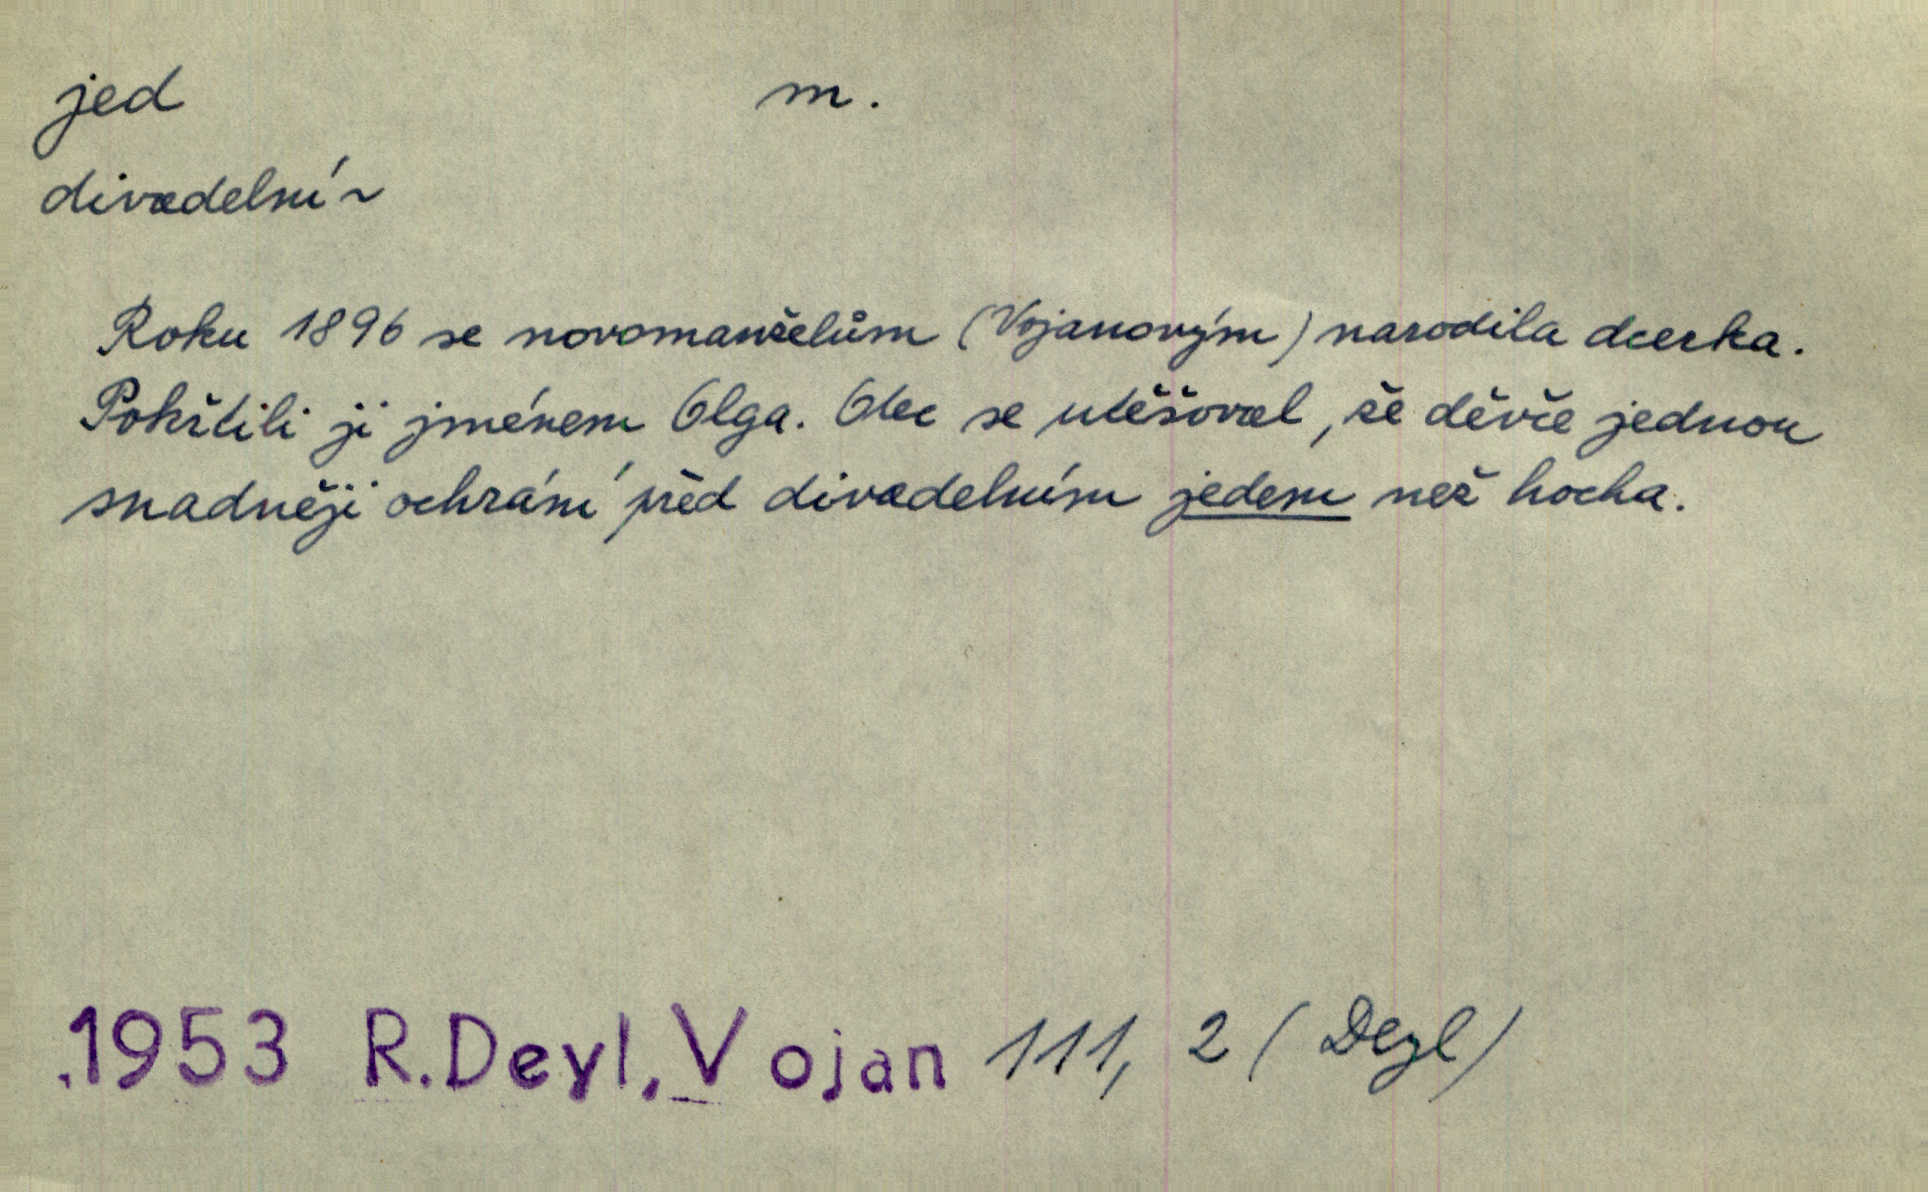 jed m.
divadelní ~
Roku 1896 se novomanželům (Vojanovým) narodila dcerka.
Pokřtili ji jménem Olga. Otec se utěšoval, že děvče jednou
snadněji ochrání před divadelním jedem než hocha.
.1953 R.Deyl, Vojan 111, 2 (Deyl)